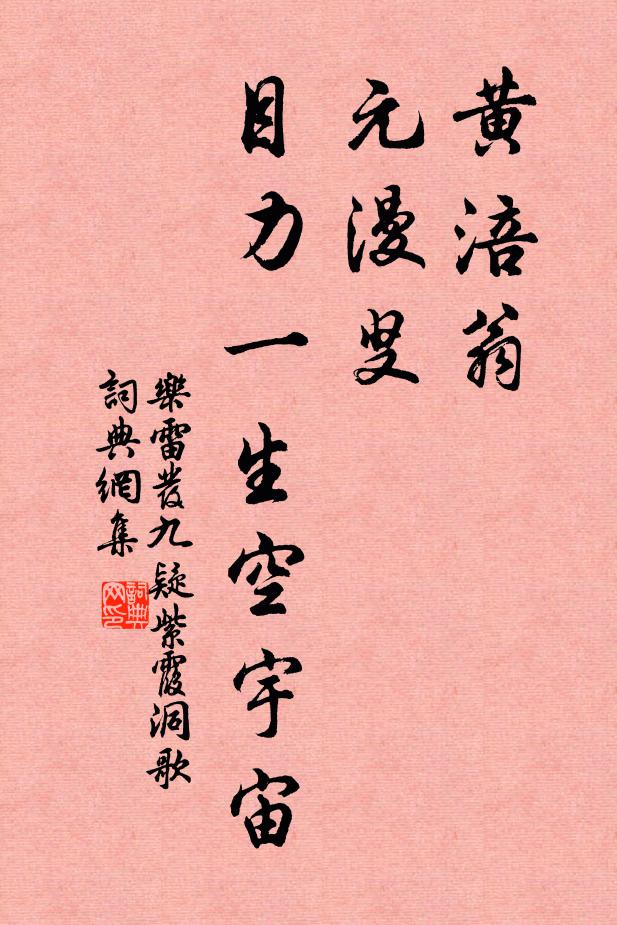 黄涪翁
元漫叟
目力一生空宇宙
樂雷發九疑紫霞洞歌
詞典網集
詞典
网印